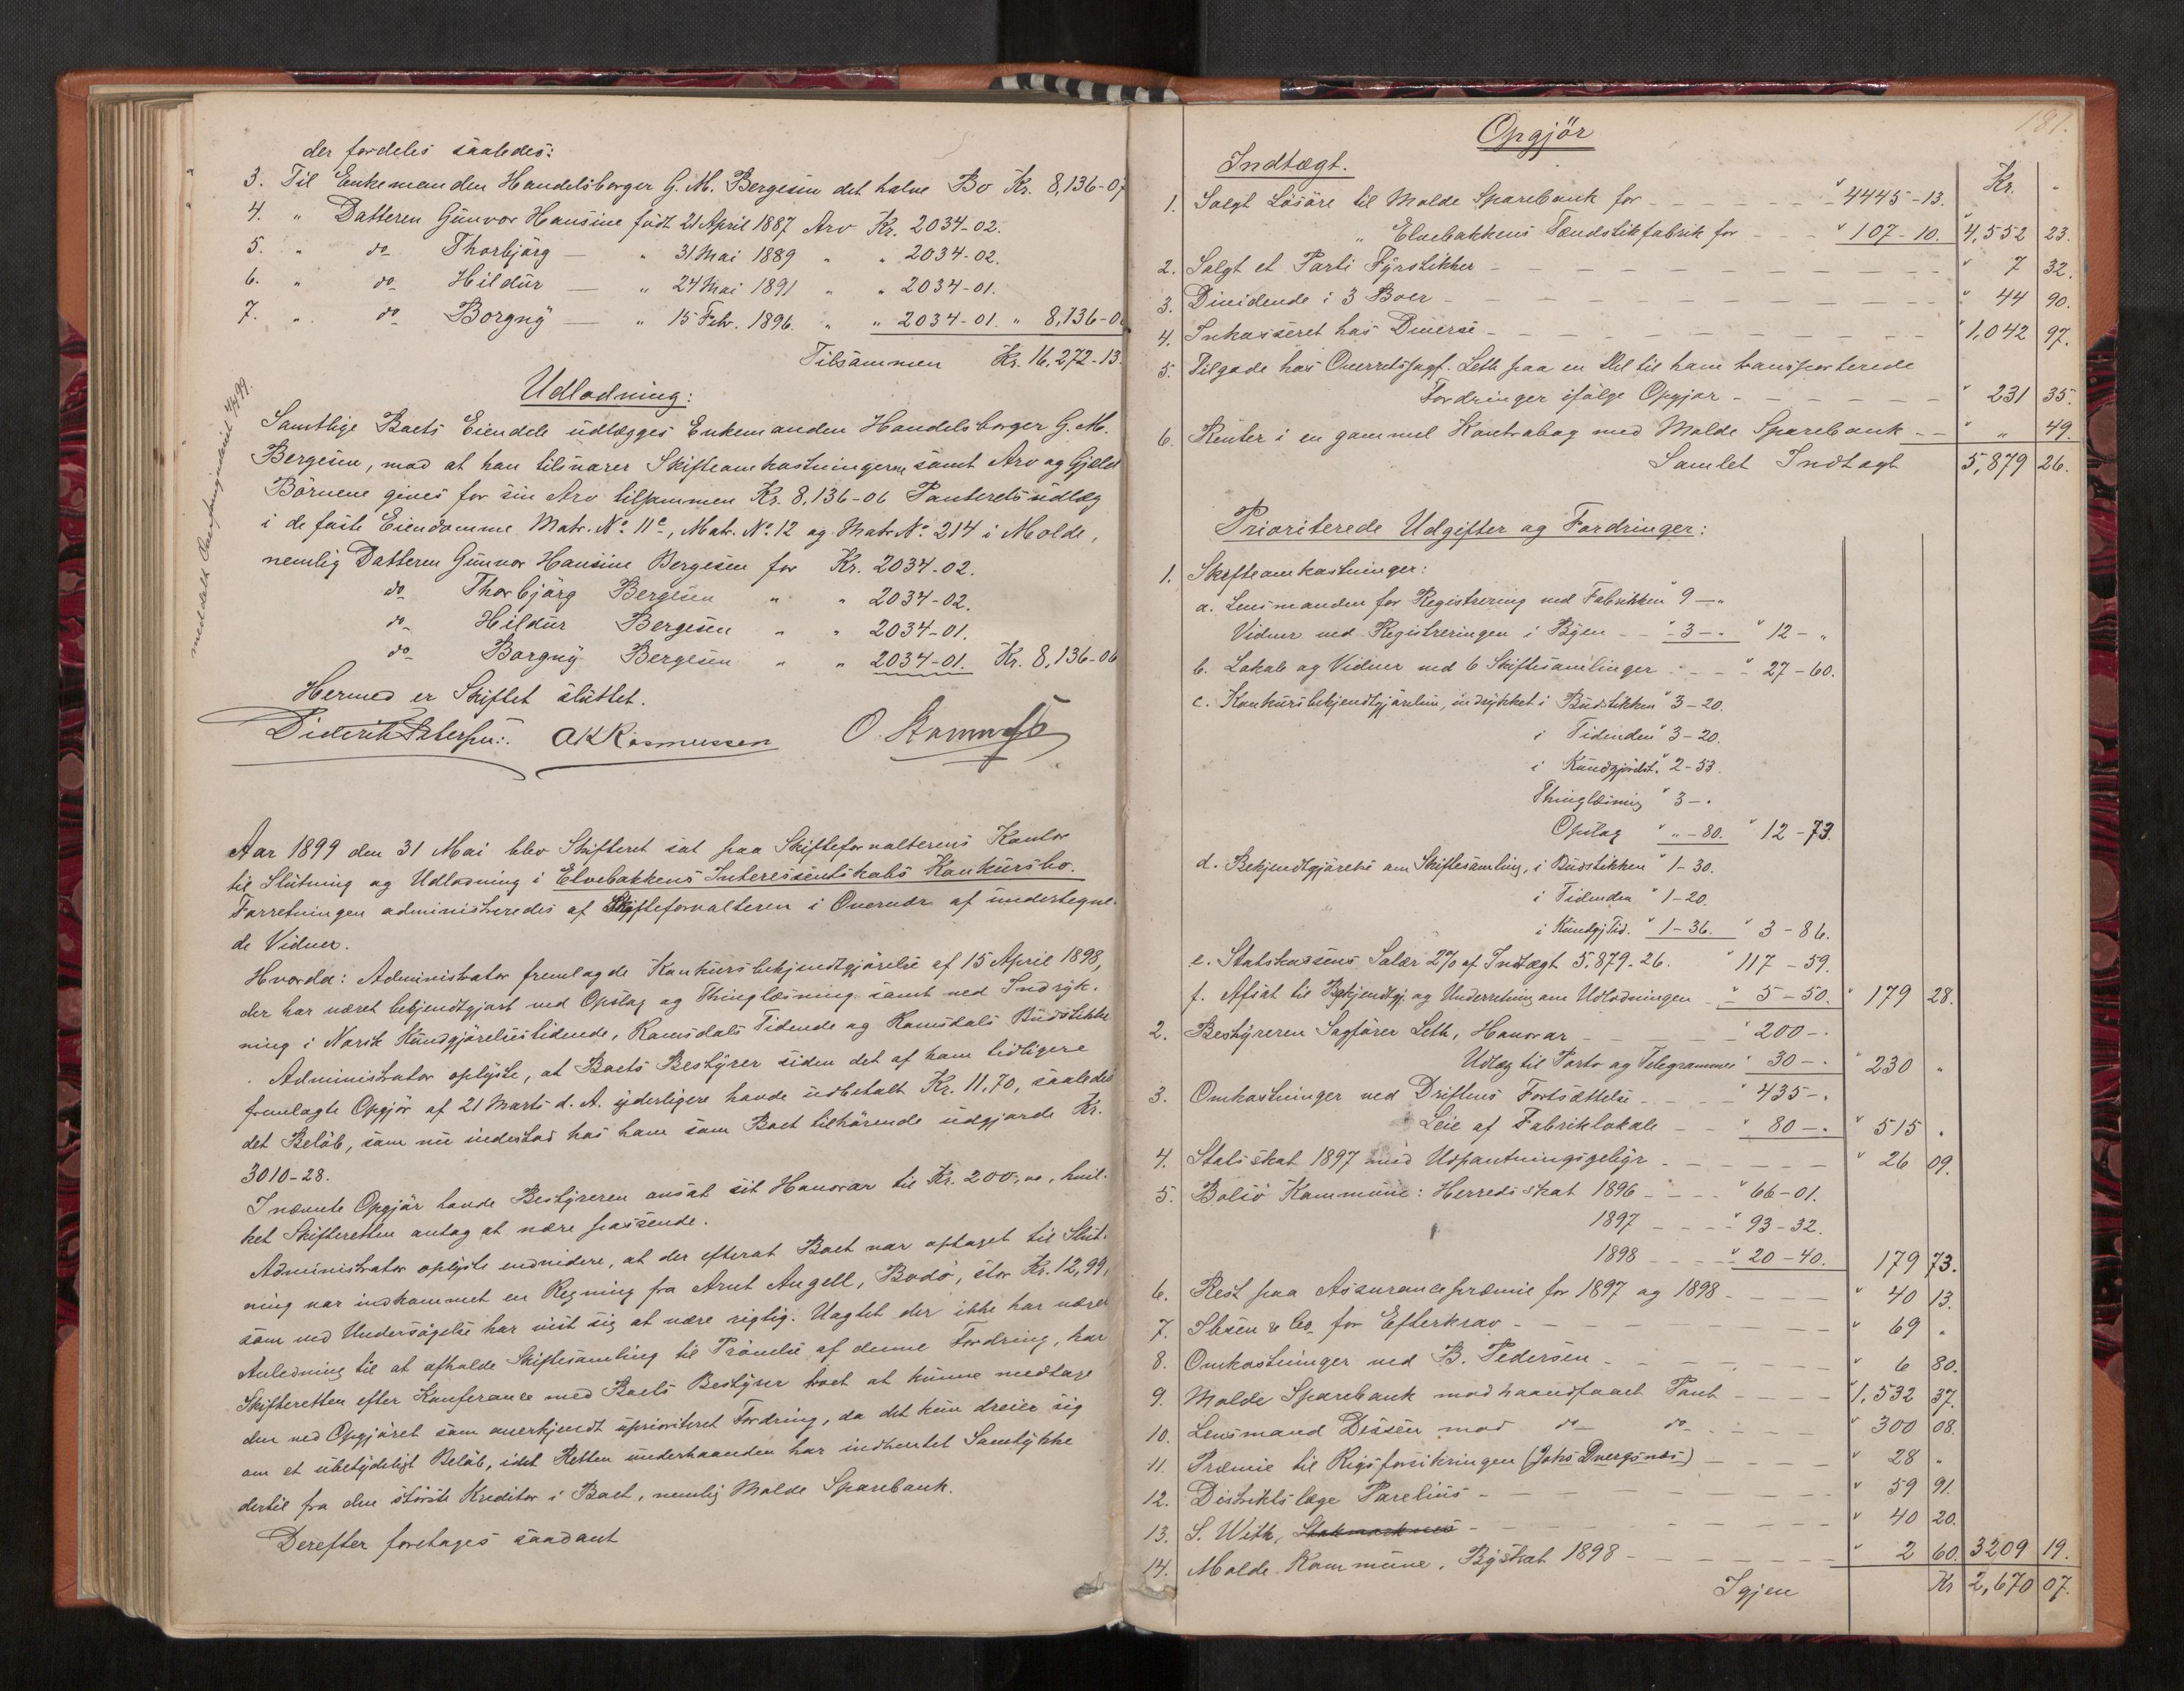 der fordeles saaledes:
3. Til Enkemanden Handelsborger G. M. Bergesen det halve Bo Kr. 8,136-07
4. " Datteren Gunvor Hansine født 21 April 1887 Arv Kr. 2034-02.
5. " do Thorbjörg — " 31 Mai 1889 " " 2034-02.
6. " do Hildur — " 24 Mai 1891 " " 2034-01.
7. " do Borgny — " 15 Febr. 1896. " " 2034-01. " 8,136-06
Tilsammen Kr. 16,272-13.
Udlodning:
Samtlige Boets Eiendele udlægges Enkemanden Handelsborger G. M.
Bergesen, mod at han tilsvarer Skifteomkostningerne samt Arv og Gjæld
Börnene gives for sin Arv tilsammen Kr. 8,136-06 Panteretsudlæg
i de faste Eiendomme Matr. No. 11c, Matr. No. 12 og Matr. No. 214 i Molde,
nemlig Datteren Gunvor Hansine Bergesen for Kr. 2034-02.
do Thorbjörg Bergesen " " 2034-02.
do Hildur Bergesen " " 2034-01.
do Borgny Bergesen " " 2034-01. Kr. 8,136-06
Hermed er Skiftet sluttet.
Diderik Petersen. OKRasmussen O.
meddelt Overformynderiet 4/7 99.
Aar 1899 den 31 Mai blev Skifteret sat paa Skifteforvalterens Kontor
til Slutning og Udlodning i Elvebakkens Interessentskabs Konkursbo.
Forretningen administreredes af Skifteforvalteren i Overvær af undertegne-
de Vidner.
Hvorda: Administrator fremlagde Konkursbekjendtgjörelse af 15 April 1898,
der har været bekjendtgjort ved Opslag og Thinglæsning samt ved Indryk-
ning i Norsk Kundgjörelsestidende, Romsdals Tidende og Romsdals Budstikke
Administrator oplyste, at Boets Bestyrer siden det af ham tidligere
fremlagte Opgjör af 21 Marts d. A. yderligere havde udbetalt Kr. 11,70, saaledes
det Belöb, som nu indestod hos ham som Boet tilhörende udgjorde Kr.
3010-28.
I nævnte Opgjör havde Bestyreren ansat sit Honorar til Kr. 200,00, hvil-
ket Skifteretten antog at være passende.
Administrator oplyste endvidere, at der efterat Boet var optaget til Slut-
ning var indkommet en Regning fra Arnt Angell, Bodö, stor Kr. 12,99,
som ved Undersögelse har vist sig at være rigtig. Uagtet der ikke har været
Anledning til at afholde Skiftesamling til Prövelse af denne Fordring, har
Skifteretten efter Konferance med Boets Bestyrer troet at kunne medtage
den ved Opgjöret som anerkjendt uprioriteret Fordring, da det kun dreier sig
om et ubetydeligt Belöb, idet Retten underhaanden har indhentet Samtykke
dertil fra den störste Kreditor i Boet, nemlig Molde Sparebank.
Derefter foretages saadant
181.
Opgjör
Indtægt. Kr.
1. Solgt Lösöre til Molde Sparebank for " 4445-13.
" Elvebakkens Tændstikfabrik for " 107-10. " 4,552 23.
2. Solgt et Parti Fyrstikker " 7 32.
3. Dividende i 3 Boer " 44 90.
4. Inkasseret hos Diverse " 1,042 97.
5. Tilgode hos Overretssagf. Leth paa en Del til ham transporterede
Fordringer ifölge Opgjör " 231 35.
6. Renter i en gammel Kontrabog med Molde Sparebank " " 49.
Samlet Indtægt 5,879 26.
Prioriterede Udgifter og Fordringer:
1. Skifteomkostninger:
a. Lensmanden for Registrering ved Fabrikken " 9 — "
Vidner ved Registreringen i Byen " 3 — " " 12 — "
b. Lokale og Vidner ved 6 Skiftesamlinger " 27-60.
c. Konkursbekjendtgjörelsen, indrykket i Budstikken " 3-20.
i Tidenden " 3-20.
i Kundgjördst. " 2-53.
Thinglæsning " 3 — "
Opslag " " -80. " 12-73.
d. Bekjendtgjörelse om Skiftesamling, i Budstikken " 1-30.
i Tidenden " 1-20.
i Kundgj Tid. " 1-36. " 3-86.
e. Statskassens Salær 2% af Indtægt 5,879-26. " 117-59.
f. Afsat til Bekjendtgj. og Underretning om Udlodningen " 5-50. " 179 28.
2. Bestyreren Sagförer Leth, Honorar " 200 — "
Udlæg til Porto og Telegrammer " 30 — " " 230 "
3. Omkostninger ved Driftens Fortsættelse " 435 — "
Leie af Fabriklokale " 80 — " " 515 "
4. Statsskat 1897 med Udpantningsgebyr " 26 09.
5. Bolsö Kommune: Herredsskat 1896 " 66-01.
1897 " 93-32.
1898 " 20-40. 179 73.
6. Rest paa Assurancepræmie for 1897 og 1898 " 40 13.
7. Ibsen & Co. for Efterkrav " 69 "
8. Omkostninger ved B. Pedersen " 6 80.
9. Molde Sparebank mod haandfaaet Pant " 1,532 37.
10. Lensmand Dessen mod do do " 300 08.
11. Præmie til Rigsforsikringen (Johs Dvergsnes) " 28 "
12. Distriktslæge Parelius " 59 91.
13. S. With, " 40 20.
14. Molde Kommune, Byskat 1898 " 2 60. 3209 19.
Igjen Kr 2,670 07.